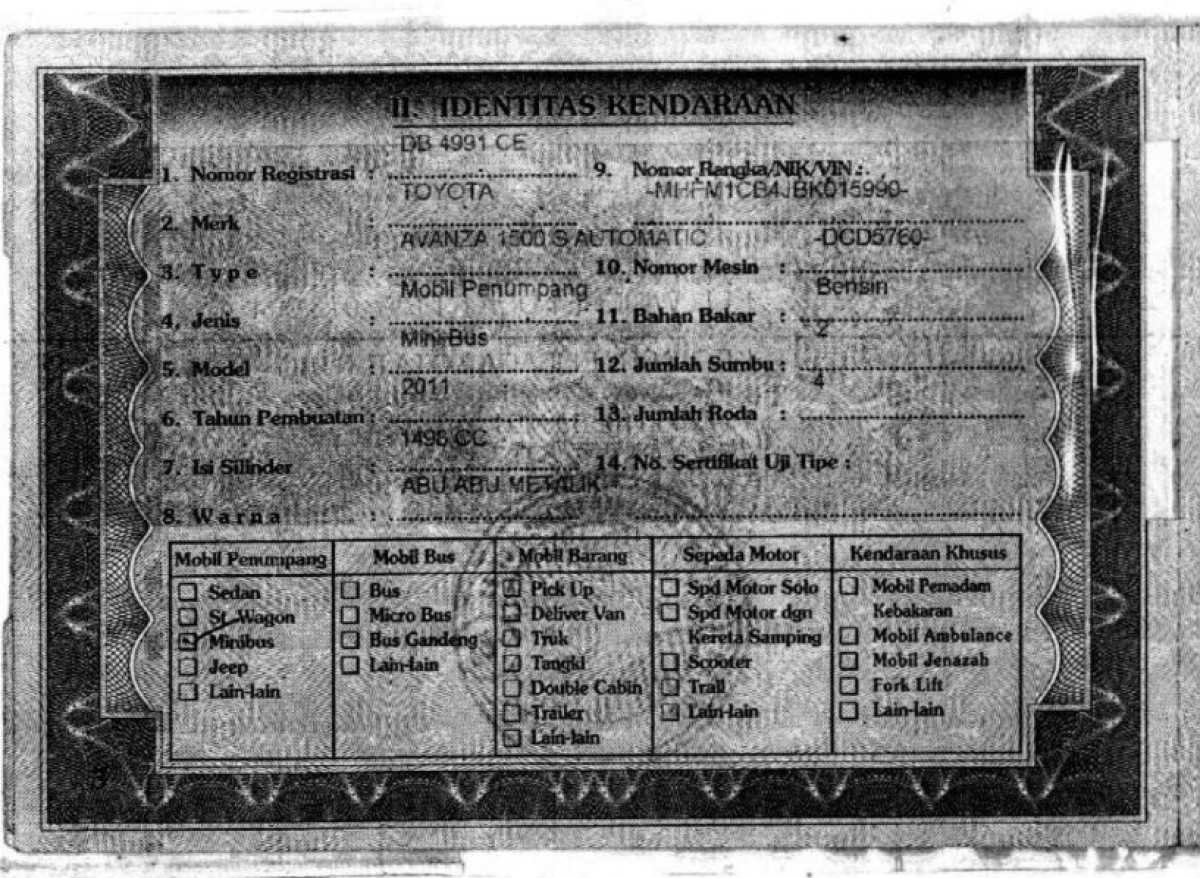 II. IDENTITAS KENDARAAN
DB 4991 CE
1. Nomor Registrasi :
TOYOTA
2. Merk
AVANZA 1500 S AUTOMATIC
3. Type :
Mobil Penumpang
4. Jenis :
Mini Bus
5. Model :
2011
6. Tahun Pembuatan :
1495 CC
7. Isi Silinder :
ABU ABU METALIK
8. Warna :
9. Nomor Rangka/NIK/VIN :
-MHFM1CB4JBK015990-
-DCD5760-
10. Nomor Mesin :
Bensin
11. Bahan Bakar :
2
12. Jumlah Sumbu :
4
13. Jumlah Roda :
14. No. Sertifikat Uji Tipe :
Mobil Penumpang
Sedan
St. Wagon
Minibus
Jeep
Lain-lain
Mobil Bus
Bus
Micro Bus
Bus Gandeng
Lain-lain
Mobil Barang
Pick Up
Deliver Van
Truk
Tangki
Double Cabin
Trailer
Lain-lain
Sepeda Motor
Spd Motor Solo
Spd Motor dgn
Kereta Samping
Scooter
Trail
Lain-lain
Kendaraan Khusus
Mobil Pemadam
Kebakaran
Mobil Ambulance
Mobil Jenazah
Fork Lift
Lain-lain